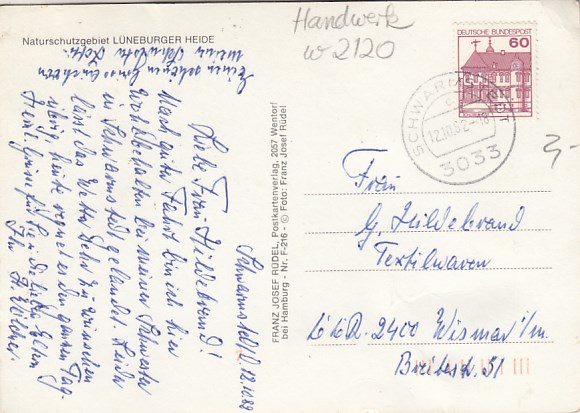 Naturschutzgebiet LÜNEBURGER HEIDE
Handwerk
w 2120
DEUTSCHE BUNDESPOST
60
SCHWARMSTEDT
12.10.82-16
3033
3,-
Schwarmstedt, 12.10.82
Liebe Frau Hildebrand!
Nach guter Fahrt bin ich hier
wohlbehalten bei meiner Schwester
in Schwarmstedt gelandet. Leider
lässt das Wetter sehr zu wünschen
übrig, heute regnet es den ganzen Tag.
Herzl. Grüße für Sie u. die lieben Eltern
Ihr
einen schönen Gruss an
meine
FRANZ JOSEF RÜDEL, Postkartenverlag, 2057 Wentorf
bei Hamburg - Nr. F-216 - © Foto: Franz Josef Rüdel
Frau
G. Hildebrand
Textilwaren
DDR. 2400 Wismar i/m.
51